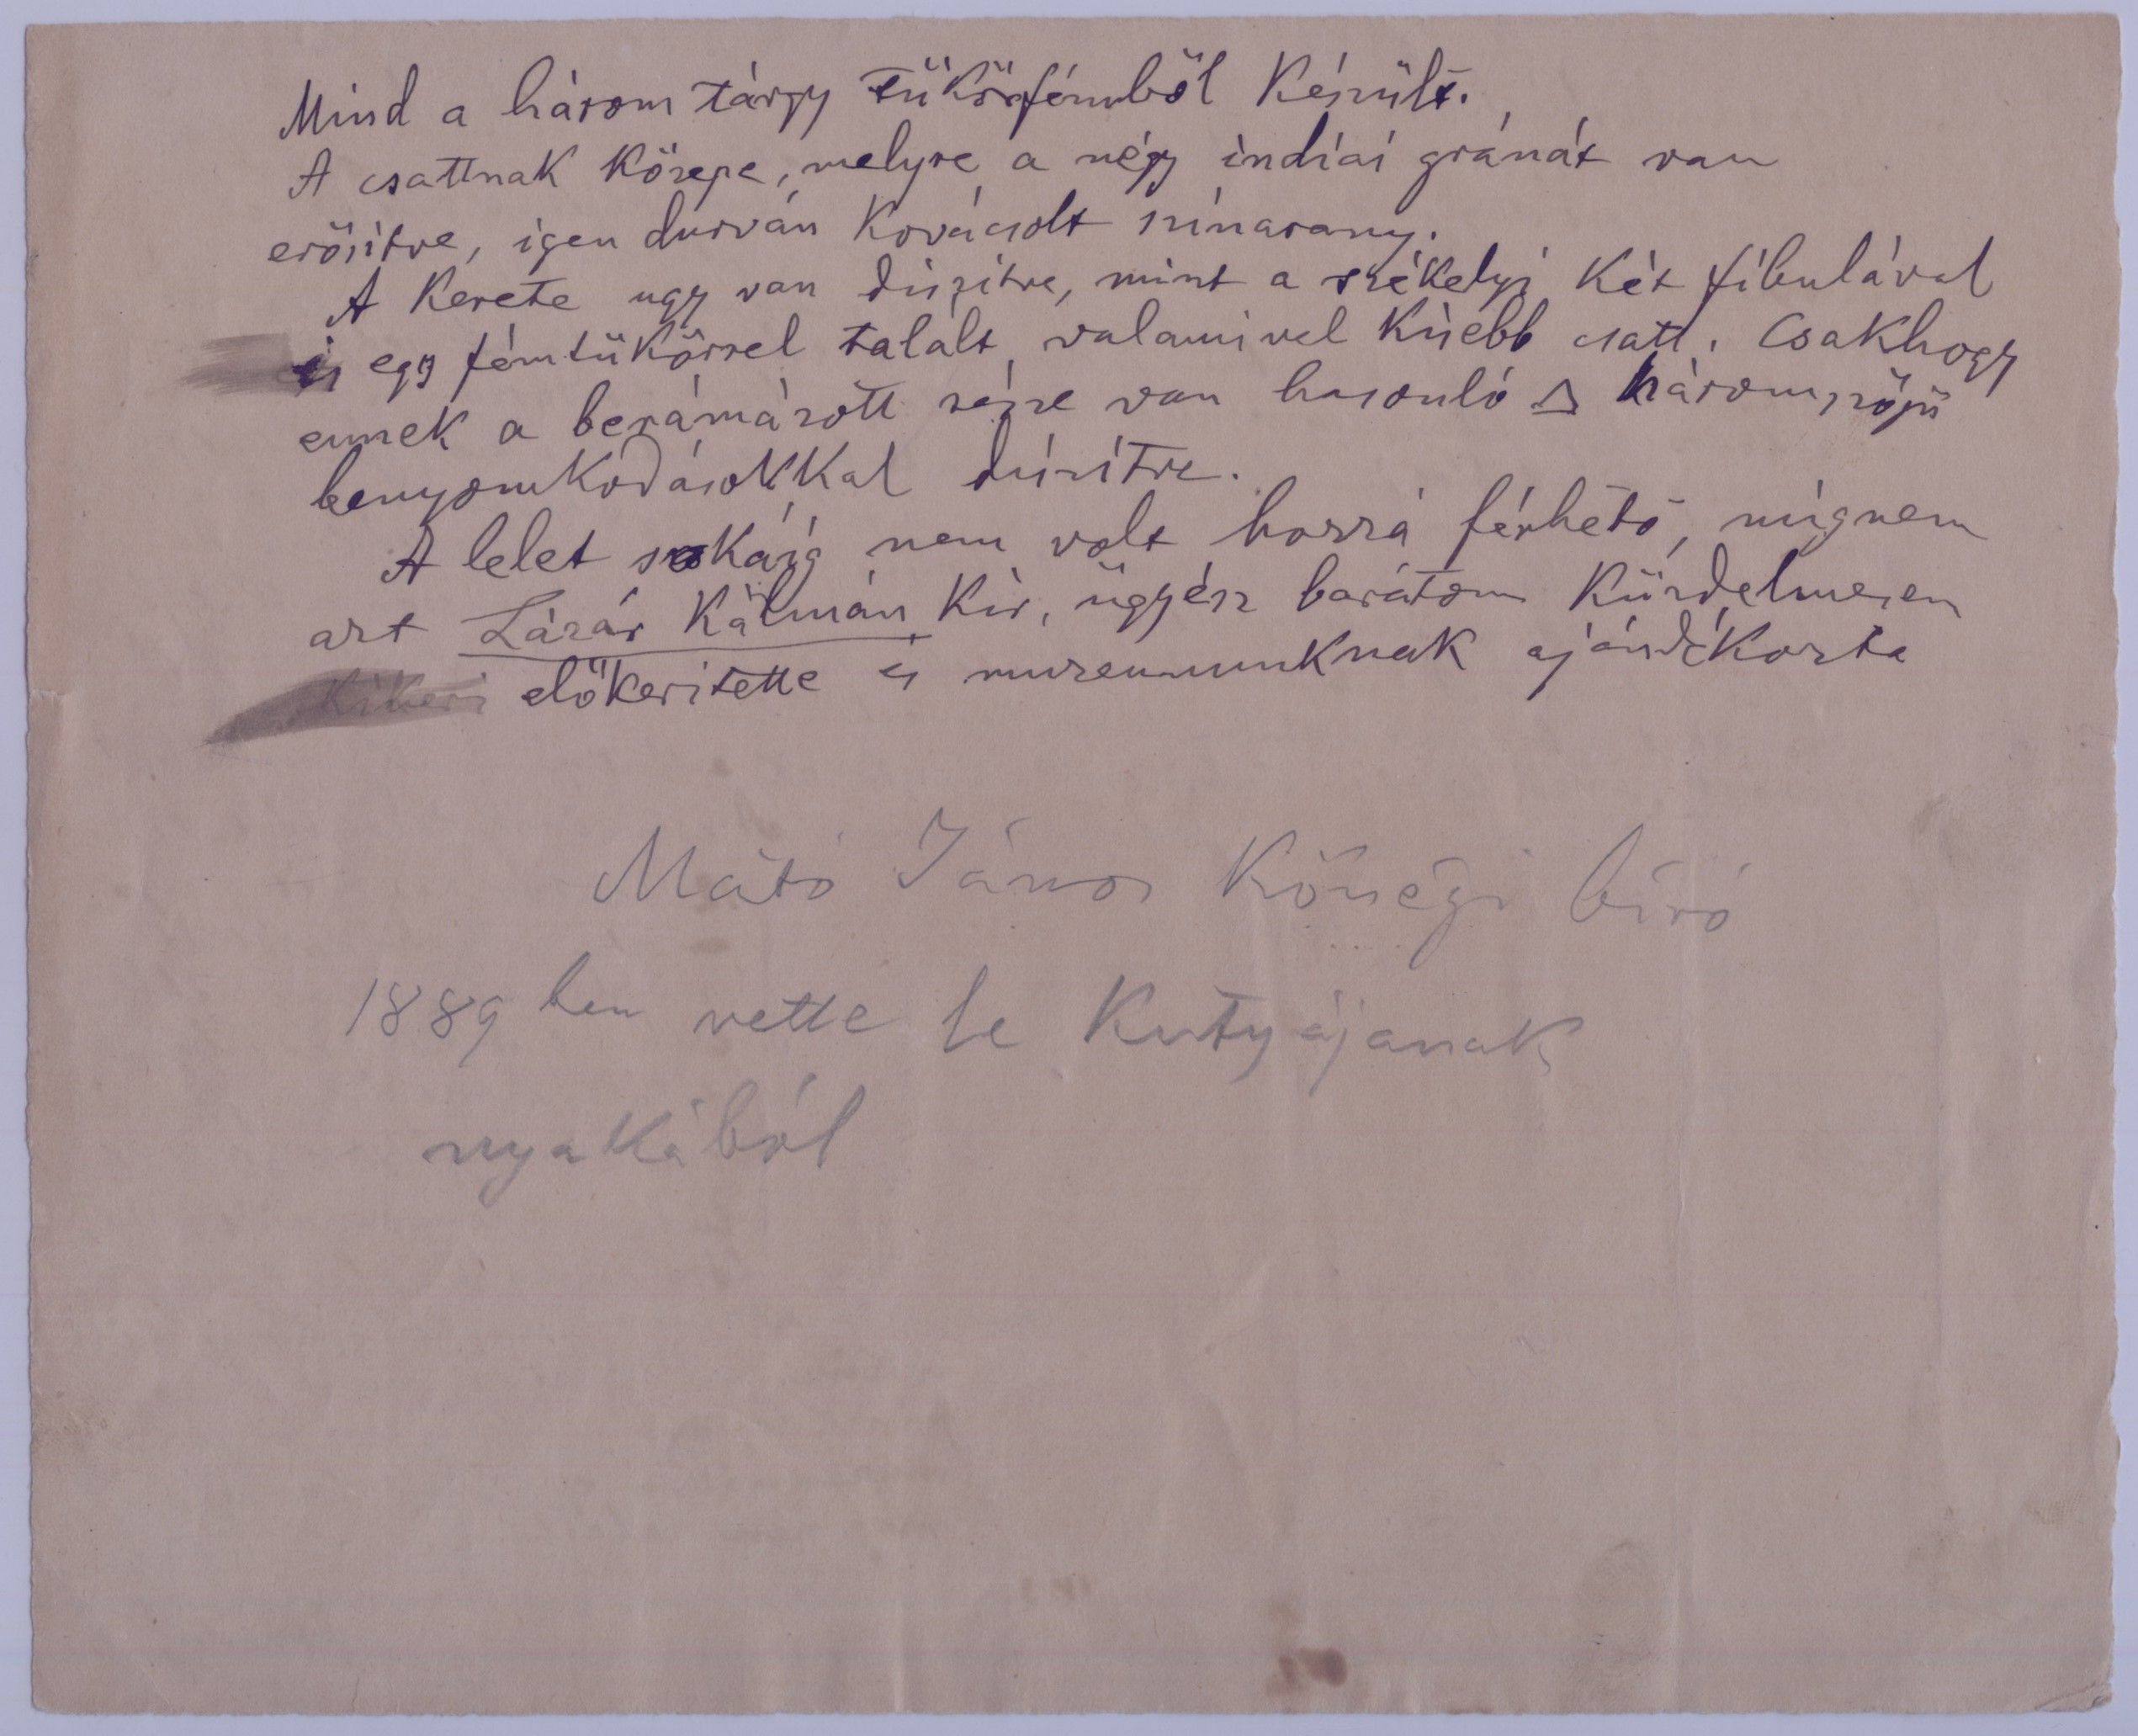 Mind a három tárgy tükörfémből készült.
A csattnak közepe, melyre a négy indiai gránát van
erősitve, igen durván kovácsolt színarany.
A kerete ugy van diszitve, mint a székelyi két fibulával
és egy fémtükörrel talált valamivel kisebb csatt. Csakhogy
ennek a berámázott része van hasonló △ háromszögű
benyomkodásokkal diszítve.
A lelet sokáig nem volt hozzá férhető, mignem
azt Lázár Kálmán kir. ügyész barátom küzdelmesen
kikeri előkeritette és muzeumunknak ajándékozta
Máté János községi bíró
1889 ben vette le kutyájanak
nyakából